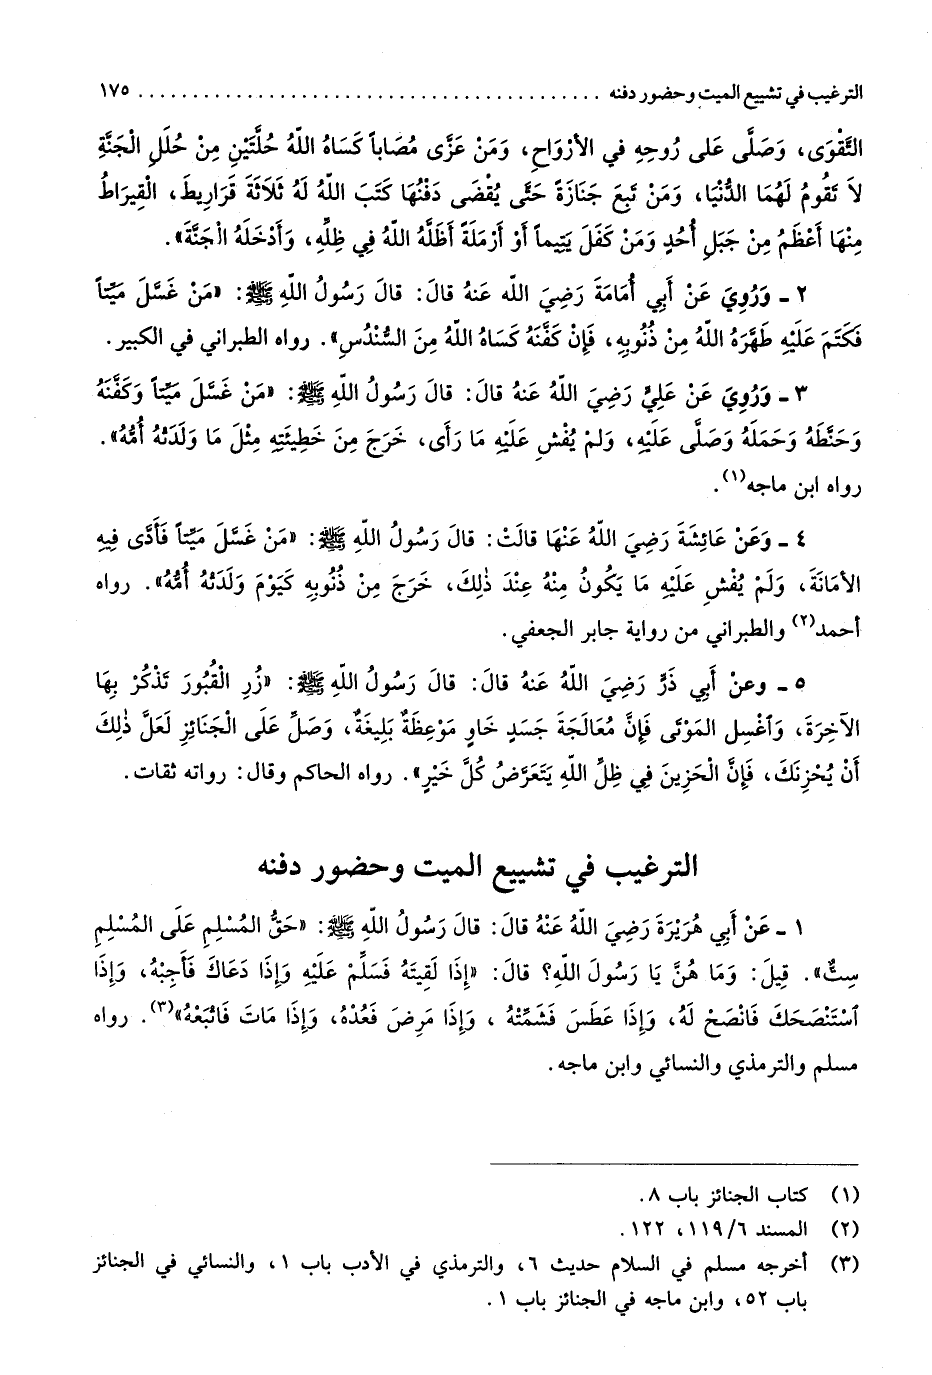 الترغيب في تشييع الميت وحضور دفنه ........................................ ١٧٥
التَّقْوَى، وَصَلَّى عَلَى رُوحِهِ في الأرْوَاحِ، وَمَنْ عَزَّى مُصَاباً كَسَاهُ اللَّهُ حُلَّتَيْنِ مِنْ حُلَلِ الْجَنَّةِ
لاَ تَقُومُ لَهُمَا الدُّنْيَا، وَمَنْ تَبِعَ جَنَازَةً حَتَّى يُقْضَى دَفْنُهَا كَتَبَ اللَّهُ لَهُ ثَلاَثَةَ قَرَارِيطَ، الْقِيرَاطُ
مِنْهَا أَعْظَمُ مِنْ جَبَلِ أُحُدٍ وَمَنْ كَفَلَ يَتِيماً أَوْ أَرْمَلَةً أَظَلَّهُ اللَّهُ فِي ظِلِّهِ، وَأَدْخَلَهُ الْجَنَّةَ».
٢ ـ وَرُوِيَ عَنْ أَبِي أُمَامَةَ رَضِيَ اللّه عَنهُ قالَ: قالَ رَسُولُ اللَّهِ ﷺ: «مَنْ غَسَّلَ مَيِّتاً
فَكَتَمَ عَلَيْهِ طَهَّرَهُ اللَّهُ مِنْ ذُنُوبِهِ، فَإنْ كَفَّنَهُ كَسَاهُ اللَّهُ مِنَ السُّنْدُسِ». رواه الطبراني في الكبير.
٣ ـ وَرُوِيَ عَنْ عَلِيٍّ رَضِيَ اللَّهُ عَنهُ قالَ: قالَ رَسُولُ اللَّهِ ﷺ: «مَنْ غَسَّلَ مَيِّتاً وَكَفَّنَهُ
وَحَنَّطَهُ وَحَمَلَهُ وَصَلَّى عَلَيْهِ، وَلَمْ يُفْشِ عَلَيْهِ مَا رَأَى، خَرَجَ مِنَ خَطِيئَتِهِ مِثْلَ مَا وَلَدَتْهُ أُمُّهُ».
رواه ابن ماجه(١).
٤ ـ وَعَنْ عَائِشَةَ رَضِيَ اللَّهُ عَنْهَا قالَتْ: قالَ رَسُولُ اللَّهِ ﷺ: «مَنْ غَسَّلَ مَيِّتاً فَأَدَّى فِيهِ
الأمَانَةَ، وَلَمْ يُفْشِ عَلَيْهِ مَا يَكُونُ مِنْهُ عِنْدَ ذٰلِكَ، خَرَجَ مِنْ ذُنُوبِهِ كَيَوْمَ وَلَدَتْهُ أُمُّهُ». رواه
أحمد(٢) والطبراني من رواية جابر الجعفي.
٥ ـ وعنْ أَبِي ذَرٍّ رَضِيَ اللَّهُ عَنهُ قالَ: قالَ رَسُولُ اللَّهِ ﷺ: «زُرِ الْقُبُورَ تَذْكُرْ بِهَا
الآخِرَةَ، وَٱغْسِلِ المَوْتَى فَإنَّ مُعَالَجَةَ جَسَدٍ خَاوٍ مَوْعِظَةٌ بَلِيغَةٌ، وَصَلِّ عَلَى الْجَنَائِزِ لَعَلَّ ذٰلِكَ
أَنْ يُحْزِنَكَ، فَإنَّ الْحَزِينَ فِي ظِلِّ اللَّهِ يَتَعَرَّضُ كُلَّ خَيْرٍ». رواه الحاكم وقال: رواته ثقات.
الترغيب في تشييع الميت وحضور دفنه
١ ـ عَنْ أَبِي هُرَيْرَةَ رَضِيَ اللَّهُ عَنْهُ قالَ: قالَ رَسُولُ اللَّهِ ﷺ: «حَقُّ المُسْلِمِ عَلَى المُسْلِمِ
سِتٌّ». قِيلَ: وَمَا هُنَّ يَا رَسُولَ اللَّهِ؟ قالَ: «إِذَا لَقِيتَهُ فَسَلِّمْ عَلَيْهِ وَإِذَا دَعَاكَ فَأَجِبْهُ، وَإِذَا
ٱسْتَنْصَحَكَ فَانْصَحْ لَهُ، وَإِذَا عَطَسَ فَشَمِّتْهُ ، وَإِذَا مَرِضَ فَعُدْهُ، وَإِذَا مَاتَ فَاتْبَعْهُ»(٣). رواه
مسلم والترمذي والنسائي وابن ماجه.
(١) كتاب الجنائز باب ٨.
(٢) المسند ١١٩/٦، ١٢٢.
(٣) أخرجه مسلم في السلام حديث ٦، والترمذي في الأدب باب ١، والنسائي في الجنائز
باب ٥٢، وابن ماجه في الجنائز باب ١.